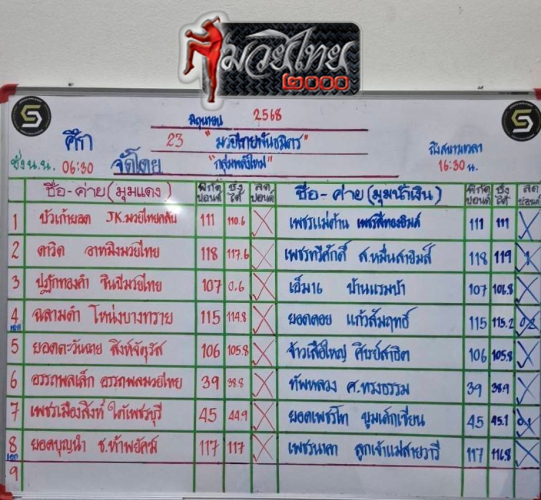 มวยไทย
๒๐๐๐
มิถุนายน 2568
ศึก 23 "มวยไทยพันธมิตร" ถึงสนามเวลา
ชั่ง น.น. 06:30 จัดโดย "กลุ่มพลังใหม่" 16:30 น.
ชื่อ-ค่าย (มุมแดง) พิกัด ปอนด์ ชั่งได้ ลด ปอนด์ ชื่อ-ค่าย (มุมน้ำเงิน) พิกัด ปอนด์ ชั่งได้ ลด ปอนด์
1 บัวเก้ายอด JK.มวยไทยคลับ 111 110.6 เพชรแม่ค้าน 111 111
2 ดาวิด อาทมิงมวยไทย 118 117.6 เพชรทวีศักดิ์ ส.หมื่นสายิมส์ 118 119 1
3 107 0.6 เอ็ม16 บ้านแรมบ้า 107 106.8
4 ฉลามดำ โหน่งบางทราย 115 114.8 ยอดดอย แก้วสัมฤทธิ์ 115 115.2 0.2
5 ยอดตะวันฉาย สิงห์จัตุรัส 106 105.8 จ้าวเสือใหญ่ ศิษย์สาธิต 106 105.8
6 อรรถพลเล็ก อรรถพลมวยไทย 39 38.8 ทัพหลวง ศ.ทรงธรรม 39 38.9
7 เพชรเมืองสิงห์ ใต้เพชรบุรี 45 44.9 ยอดเพชรโท บูมเด็กเซียน 45 45.1 0.1
8 ยอดบุญนำ ช.ห้าพยัคฆ์ 117 117 เพชรนาคา ลูกเจ้าแม่สายวารี 117 116.8
9